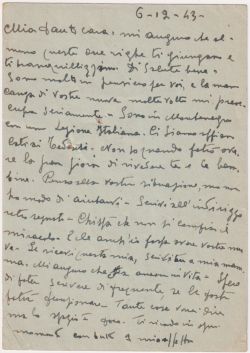 6-12-43-
Mia tanto cara: mi auguro che al-
meno queste due righe ti giungano e
ti tranquillizzino. Di salute bene-
Sono molto in pensiero per voi, e la man-
canza di vostre nuove molte volte mi preoc-
cupa seriamente. Sono in Montenegro
con una Legione Italiana. Ci siamo affian-
cati ai Tedeschi. Non so quando potrò ave-
re la gran gioia di rivedere te e la bam-
bina. Penso alla vostra situazione, ma non
ho modo di aiutarvi. Scrivi all'indirizzo
retro segnato. Chissà che non si compia il
miracolo. È da anni in forse avere vostre nuo-
ve. Se ricevi questa mia, scrivi a mia mam-
ma. Mi auguro che sia ancora in vita. Spero
di poter scrivere di frequente, se la posta
potrà funzionare. Tante cose vorrei dire
ma lo spazio è poco. Ti ricordo in ogni
momento con tutto il mio affetto